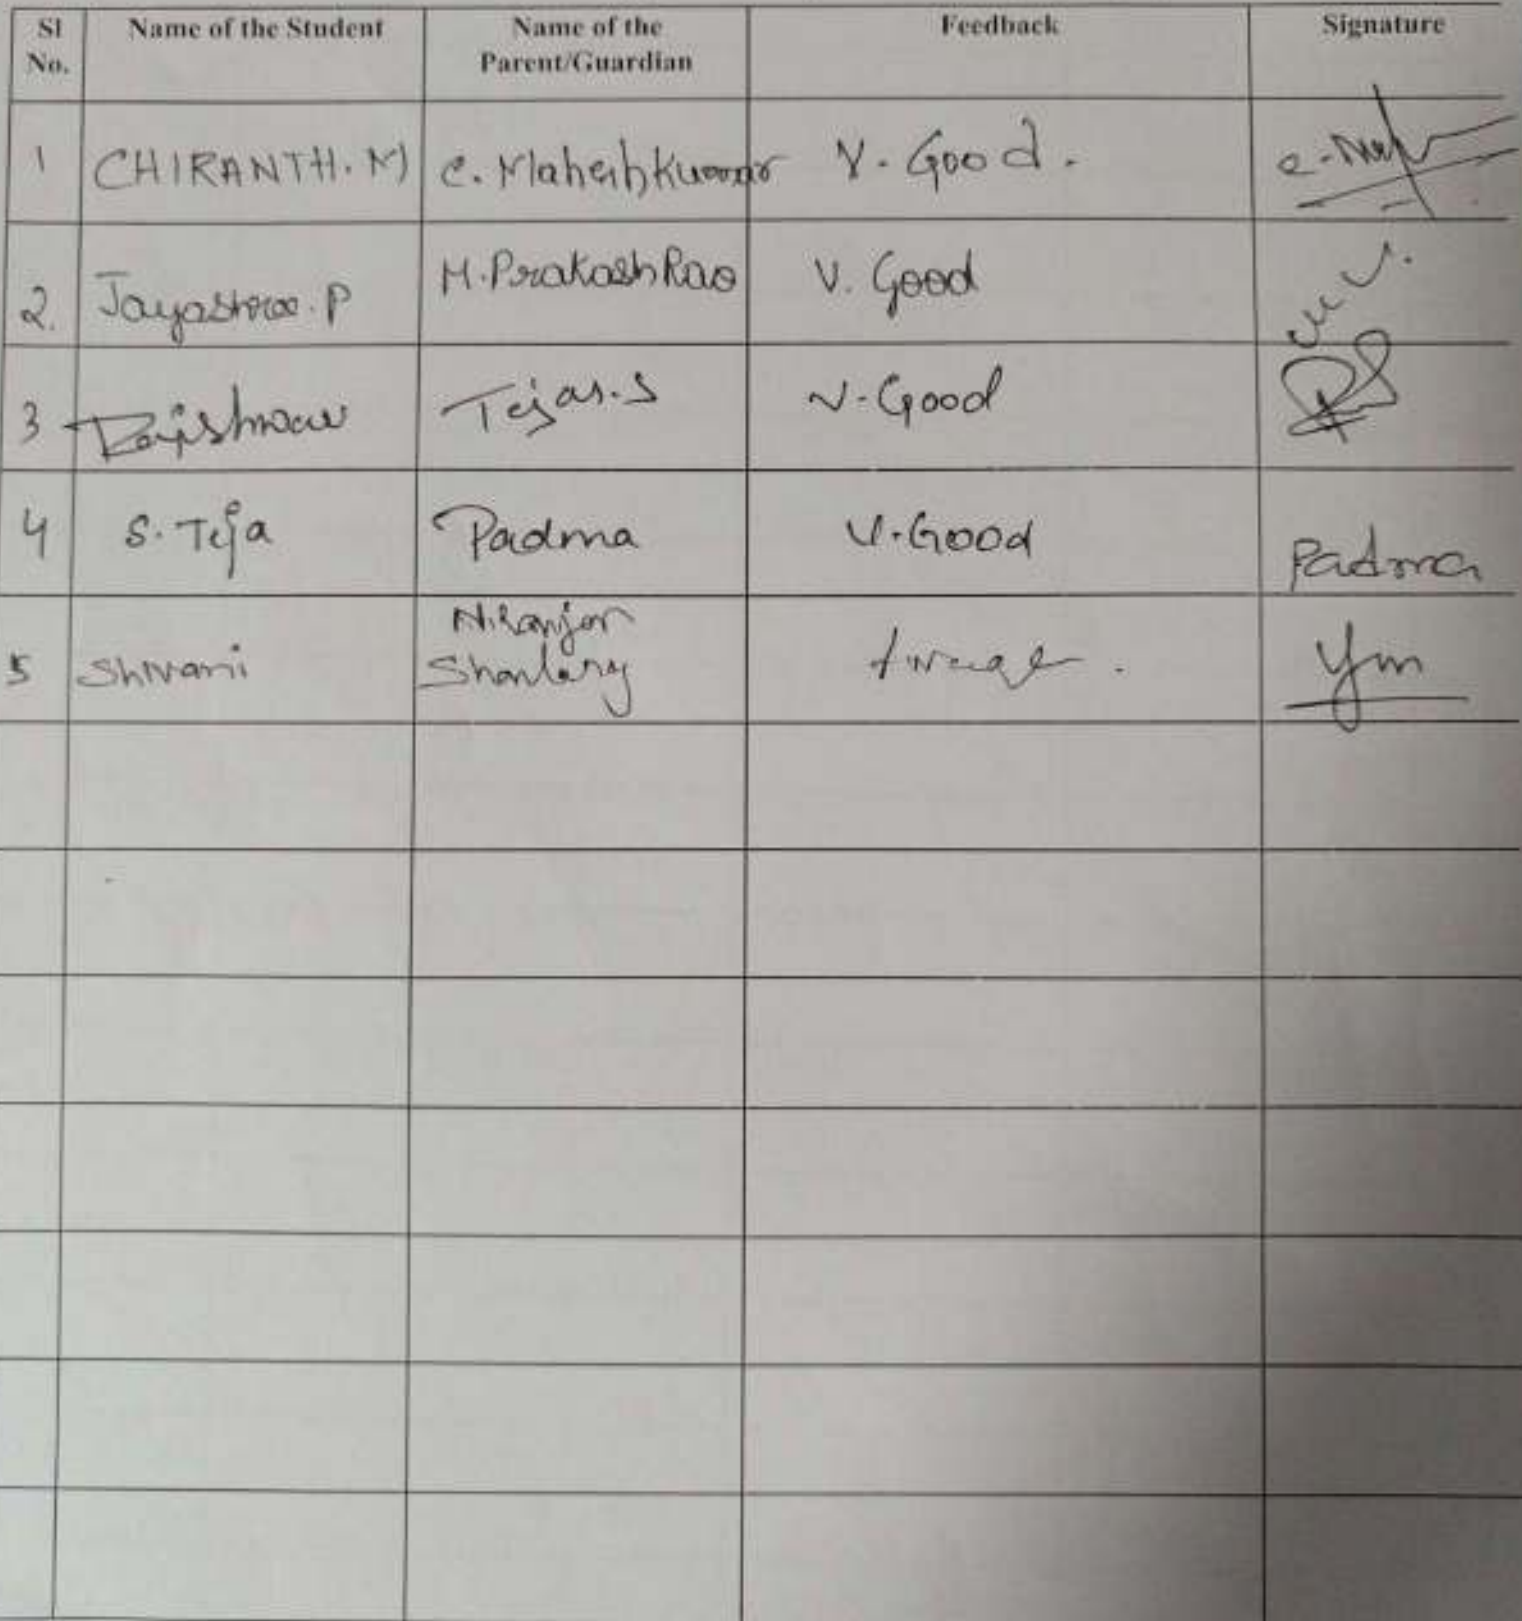 Sl No. Name of the Student Name of the Parent/Guardian Feedback Signature
1 CHIRANTH. M C. Maheshkumar V. Good.
2. Jayashree. P M. Prakash Rao V. Good
3 Tejas. S V. Good
4 S. Teja Padma V. Good Padma
5 Shivani Niranjan